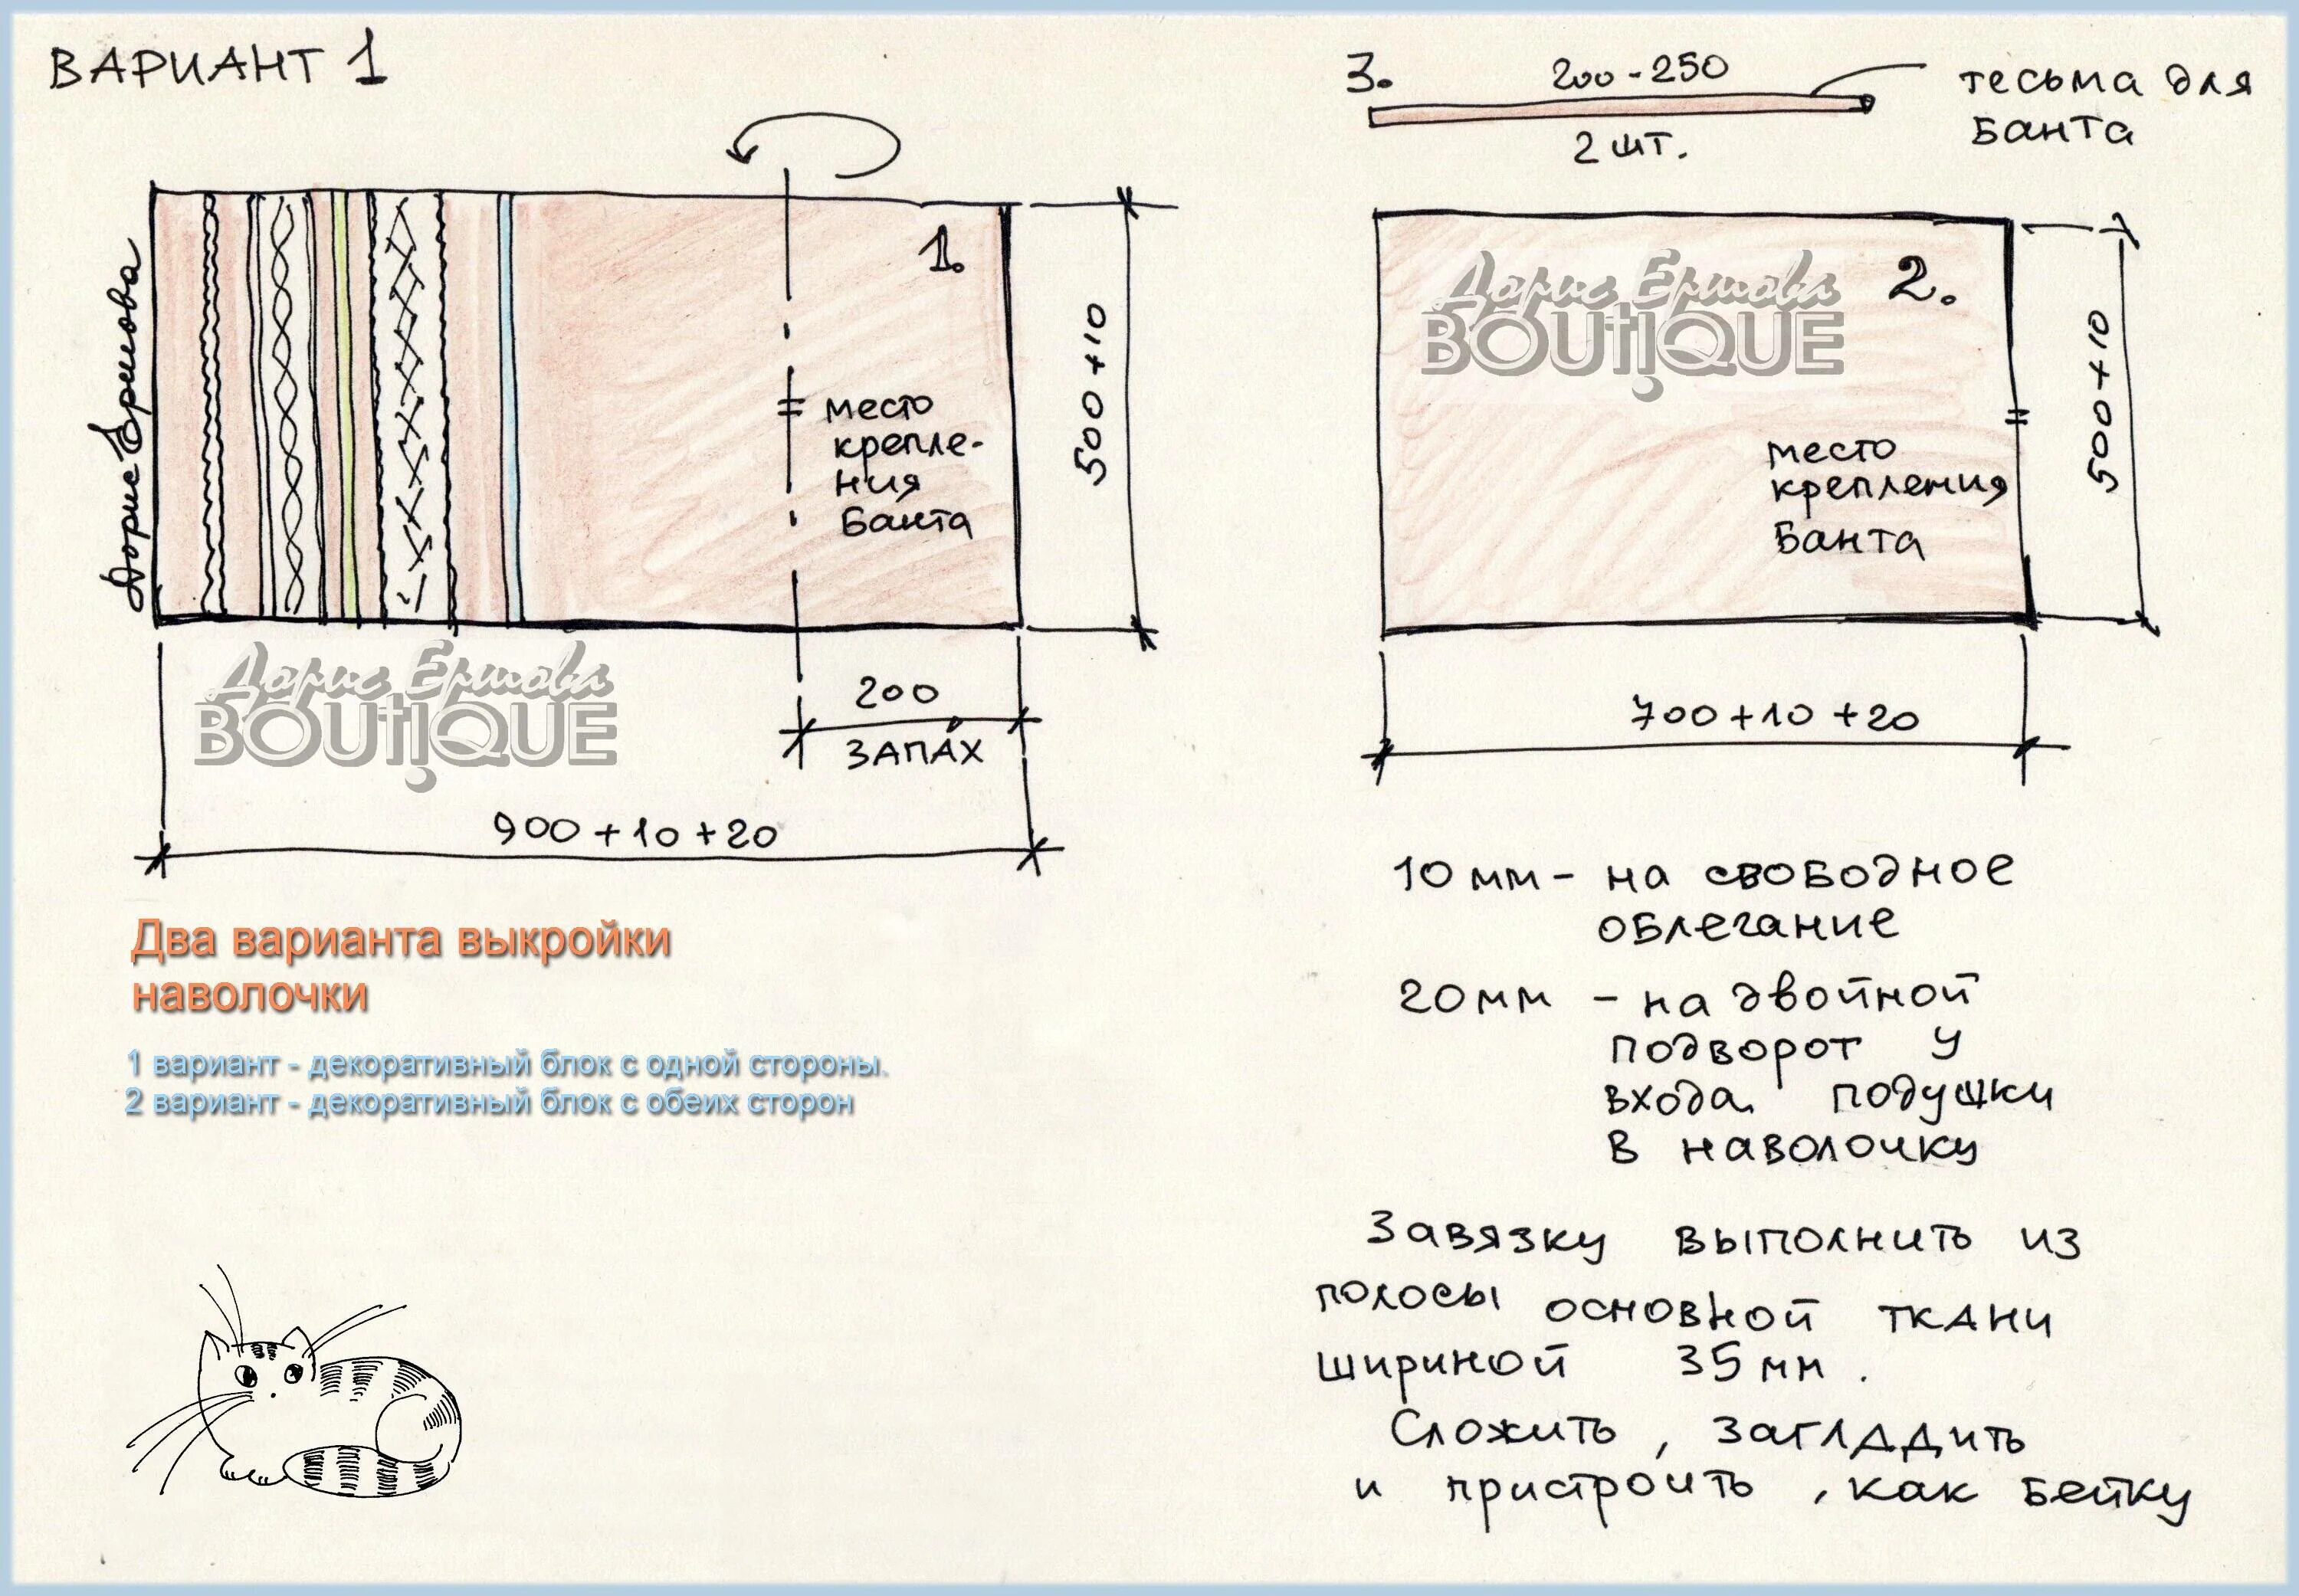 ВАРИАНТ 1
1.
место
крепле-
ния
банта
500+10
200
ЗАПАХ
900+10+20
Дорис Ершова
Дорис Ершова
BOUTIQUE
Два варианта выкройки
наволочки
1 вариант - декоративный блок с одной стороны.
2 вариант - декоративный блок с обеих сторон
3.
200-250
2 шт.
тесьма для
банта
Дорис Ершова
BOUTIQUE
2.
место
крепления
банта
500+10
700+10+20
10 мм - на свободное
облегание
20 мм - на двойной
подворот у
входа подушки
в наволочку
Завязку выполнить из
полосы основной ткани
шириной 35 мм.
Сложить, загладить
и пристроить, как бейку